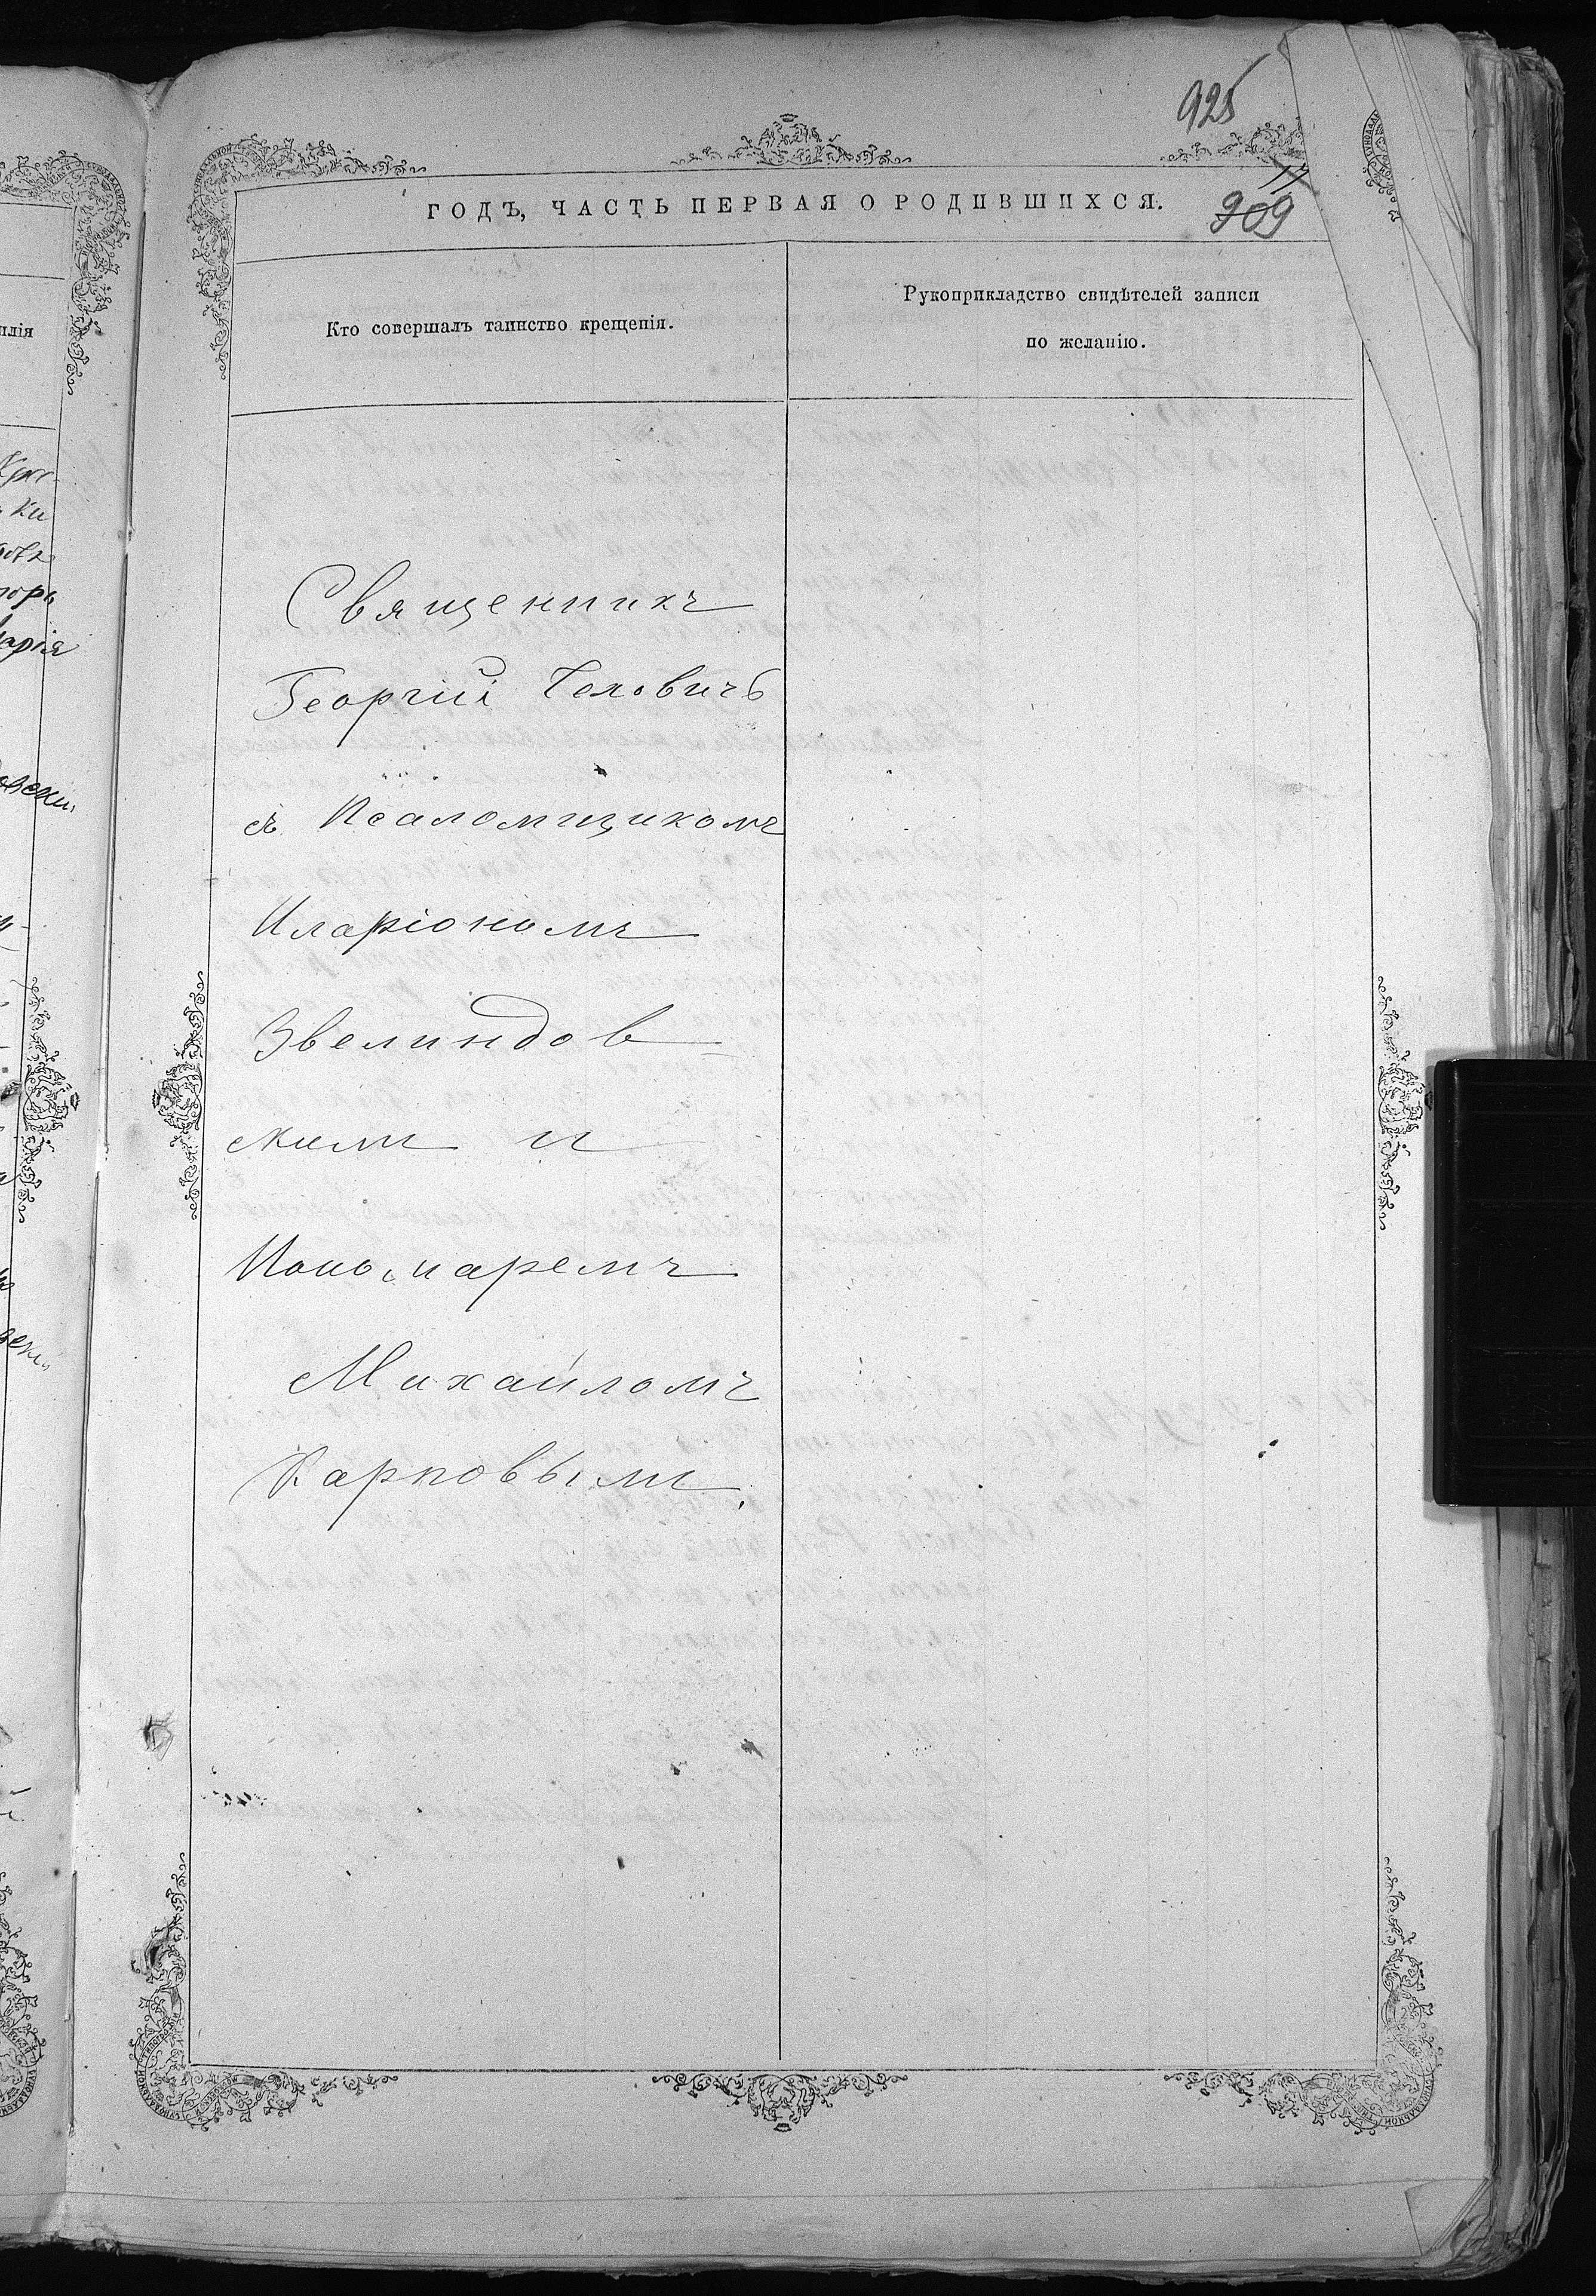 925
ГОДЪ, ЧАСТЬ ПЕРВАЯ О РОДИВШИХСЯ.
17
909
Кто совершалъ таинство крещенія.
Рукоприкладство свидѣтелей записи
по желанію.
Священникъ
Георгій Теховичъ
съ Псаломщикомъ
Иларіономъ
Звелиндов
скимъ и
Пономаремъ
Михаиломъ
Карповымъ.